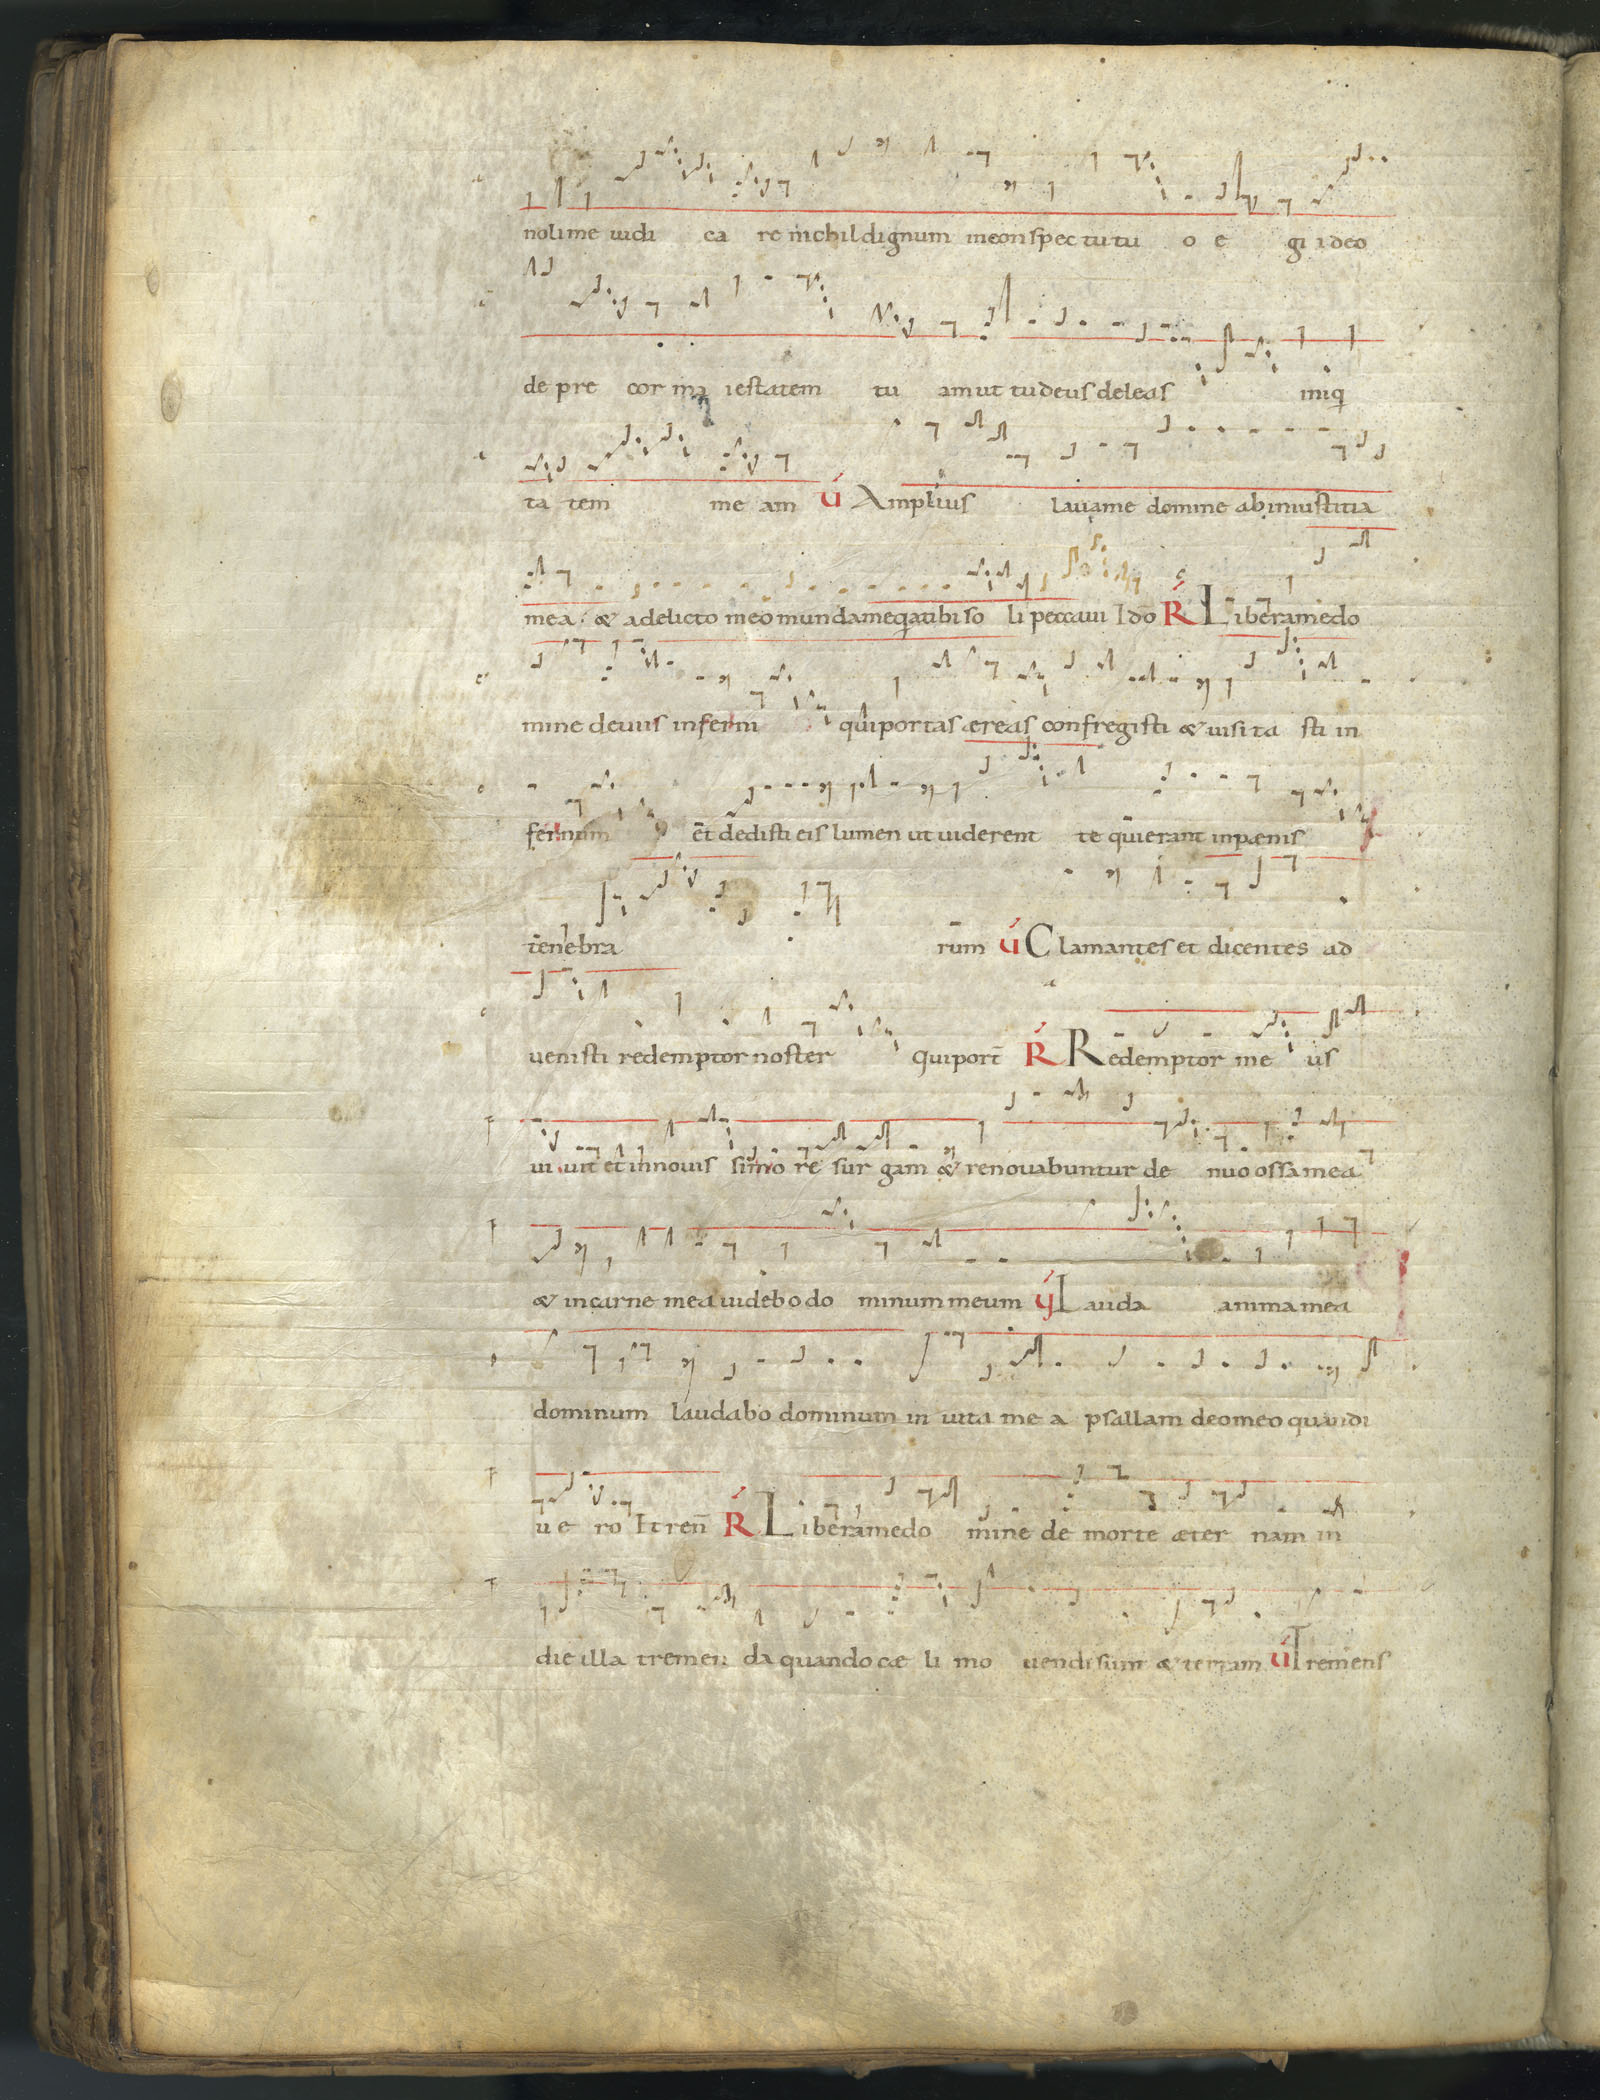 noli me iudi ca re nichil dignum in conspec tu tu o e gi ideo
de pre cor ma iestatem tu am ut tu deus deleas iniq
ta tem me am v̓ Amplius lava me domine ab iniustitia
mea & a delicto meo munda me q̄a tibi so li peccavi Ido R̓ Libera me do
mine de viis inferni qui portas æreas confregisti & visi ta sti in
fernum et dedisti eis lumen ut viderent te qui erant in pænis
tenebra rum v̓ Clamantes et dicentes ad
venisti redemptor noster qui port̄ R̓ Redemptor me us
vi vit et in novis simo re sur gam & renovabuntur de nuo ossa mea
& in carne mea videbo do minum meum v̓ Lauda anima mea
dominum laudabo dominum in vita me a psallam deo meo quandi
u e ro It ren̄ R̓ Libera me do mine de morte æter nam in
die illa tremen da quando cæ li mo vendi sunt & terram v̓ Tremens